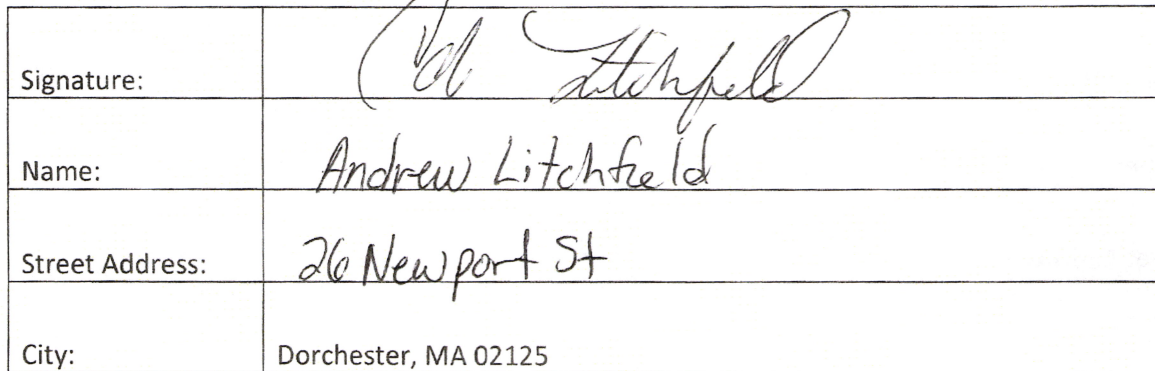 Signature: Litchfield
Name: Andrew Litchfield
Street Address: 26 Newport St
City: Dorchester, MA 02125